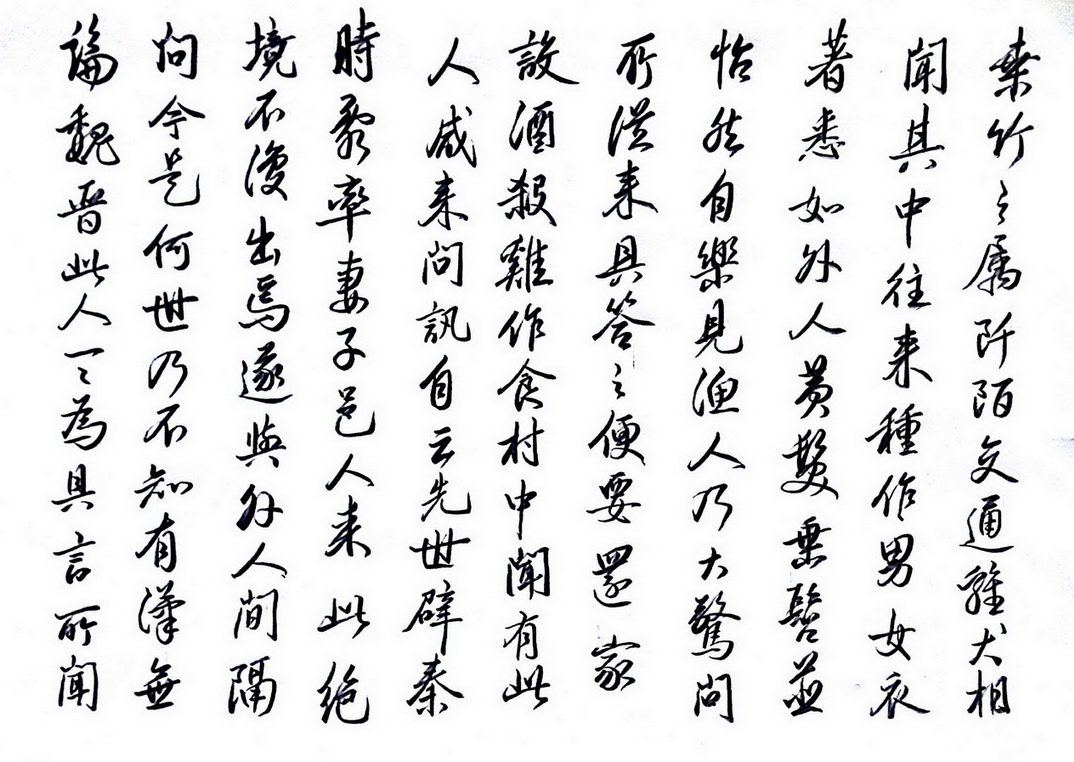 桑竹之属阡陌交通雞犬相
聞其中往来種作男女衣
著悉如外人黄髮垂髫並
怡然自樂見渔人乃大驚問
所従来具答之便要還家
設酒殺雞作食村中聞有此
人咸来問訊自云先世辟秦
時亂率妻子邑人来此绝
境不復出焉遂與外人間隔
問今是何世乃不知有漢無
論魏晋此人一一為具言所聞